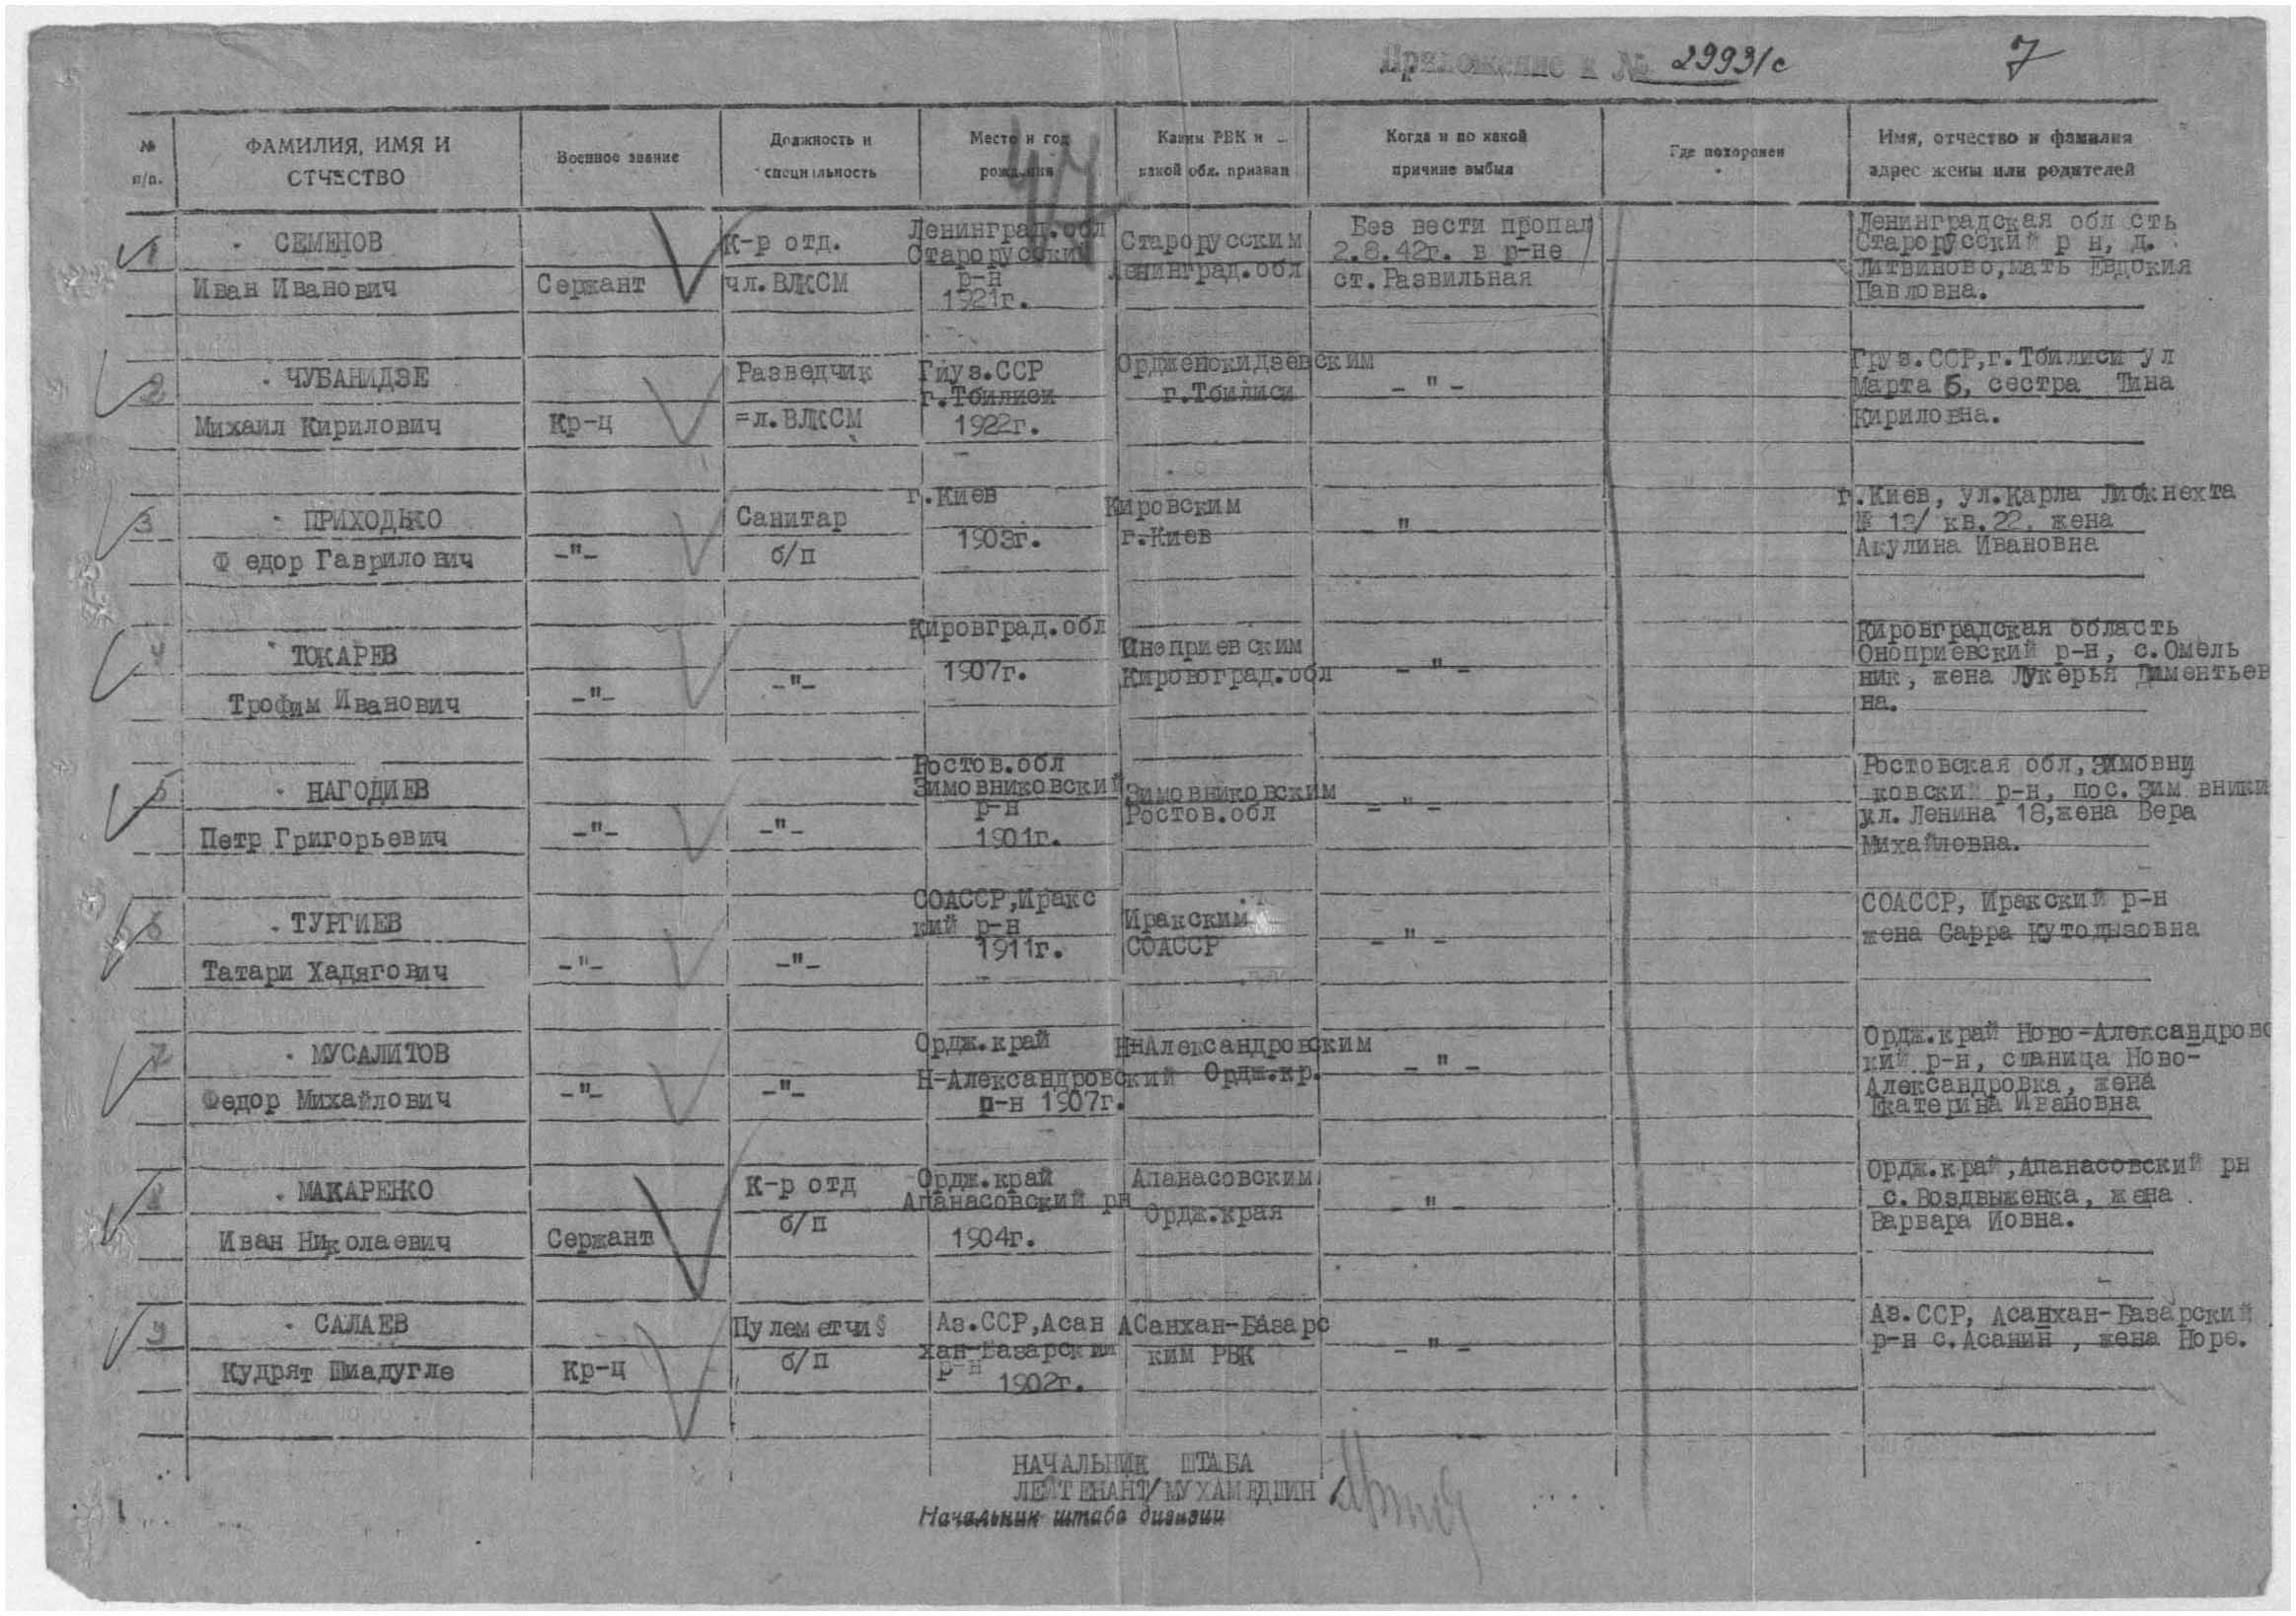 Приложение к № 29931с
7
47
№ п/п.
ФАМИЛИЯ, ИМЯ И ОТЧЕСТВО
Военное звание
Должность и специальность
Место и год рождения
Каким РВК и какой обл. призван
Когда и по какой причине выбыл
Где похоронен
Имя, отчество и фамилия адрес жены или родителей
1
СЕМЕНОВ
Иван Иванович
Сержант
К-р отд.
чл.ВЛКСМ
Ленинград.обл
Старорусский
р-н
1921г.
Старорусским
Ленинград.обл
Без вести пропал
2.8.42г. в р-не
ст.Развильная
Ленинградская обл сть
Старорусский р н, д.
Литвиново,мать Евдокия
Павловна.
2
ЧУБАНИДЗЕ
Михаил Кирилович
Кр-ц
Разведчик
=л.ВЛКСМ
Груз.ССР
г.Тбилиси
1922г.
Орджоникидзевским
г.Тбилиси
-"-
Груз.ССР,г.Тбилиси ул
Марта 5, сестра Тина
Кириловна.
3
ПРИХОДЬКО
Ф едор Гаврилович
-"-
Санитар
б/п
г.Киев
1903г.
Кировским
г.Киев
"
г.Киев, ул.Карла Либкнехта
кв.22, жена
Акулина Ивановна
4
ТОКАРЕВ
Трофим Иванович
-"-
-"-
Кировград.обл
1907г.
Оноприевским
Кировоград.обл
-"-
Кировградская область
Оноприевский р-н, с.Омель
ник, жена Лукерья Диментьев
на.
5
НАГОДИЕВ
Петр Григорьевич
-"-
-"-
Ростов.обл
Зимовниковский
р-н
1901г.
Зимовниковским
Ростов.обл
-"-
Ростовская обл,Зимовни
ковский р-н, пос.Зим вники
ул. Ленина 18,жена Вера
Михайловна.
6
ТУРГИЕВ
Татари Хадягович
-"-
-"-
СОАССР,Иракс
кий р-н
1911г.
Иракским
СОАССР
-"-
СОАССР, Иракский р-н
жена Сарра Кутодызовна
7
МУСАЛИТОВ
Федор Михайлович
-"-
-"-
Ордж.край
Н-Александровский
р-н 1907г.
Н-Александровским
Ордж.кр.
-"-
Ордж.край Ново-Александровс
кий р-н, станица Ново-
Александровка, жена
Екатерина Ивановна
8
МАКАРЕНКО
Иван Николаевич
Сержант
К-р отд
б/п
Ордж.край
Апанасовский рн
1904г.
Апанасовским
Ордж.края
-"-
Ордж.край,Апанасовский рн
с.Воздвыженка, жена
Варвара Иовна.
9
САЛАЕВ
Кудрят Шиадугле
Кр-ц
Пулеметчик
б/п
Аз.ССР,Асан
хан-Базарский
р-н
1902г.
АСанхан-Базарс
ким РВК
-"-
Аз.ССР, Асанхан-Базарский
р-н с.Асанин , жена Норе.
НАЧАЛЬНИК ШТАБА
ЛЕЙТЕНАНТ/МУХАМЕДШИН
Начальник штаба дивизии